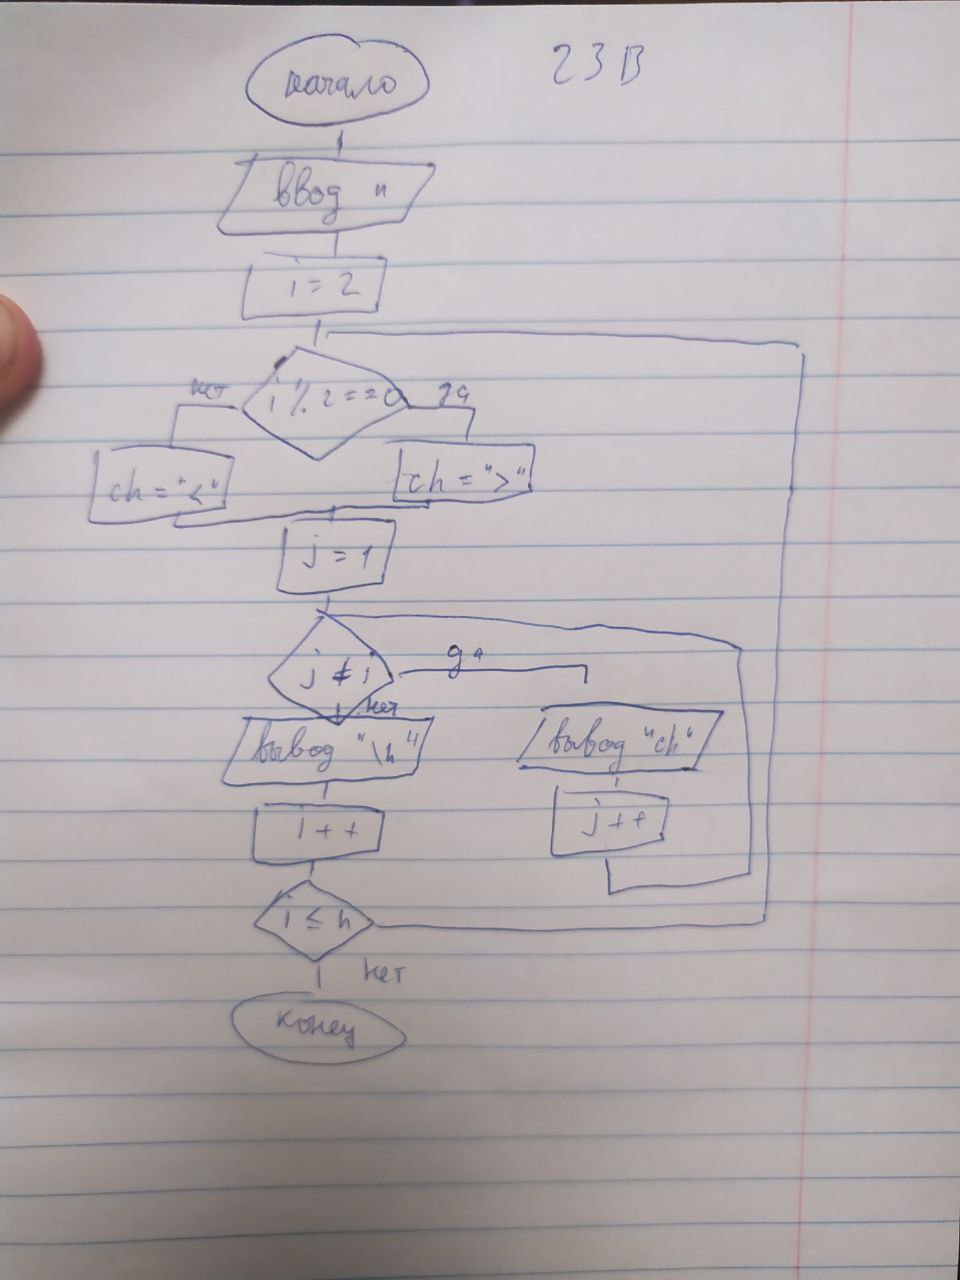 23В
начало
ввод n
i = 2
нет
i % 2 == 0
да
ch = "<"
ch = ">"
j = 1
j ≠ i
да
нет
вывод "\n"
вывод "ch"
i++
j++
i ≤ n
нет
конец